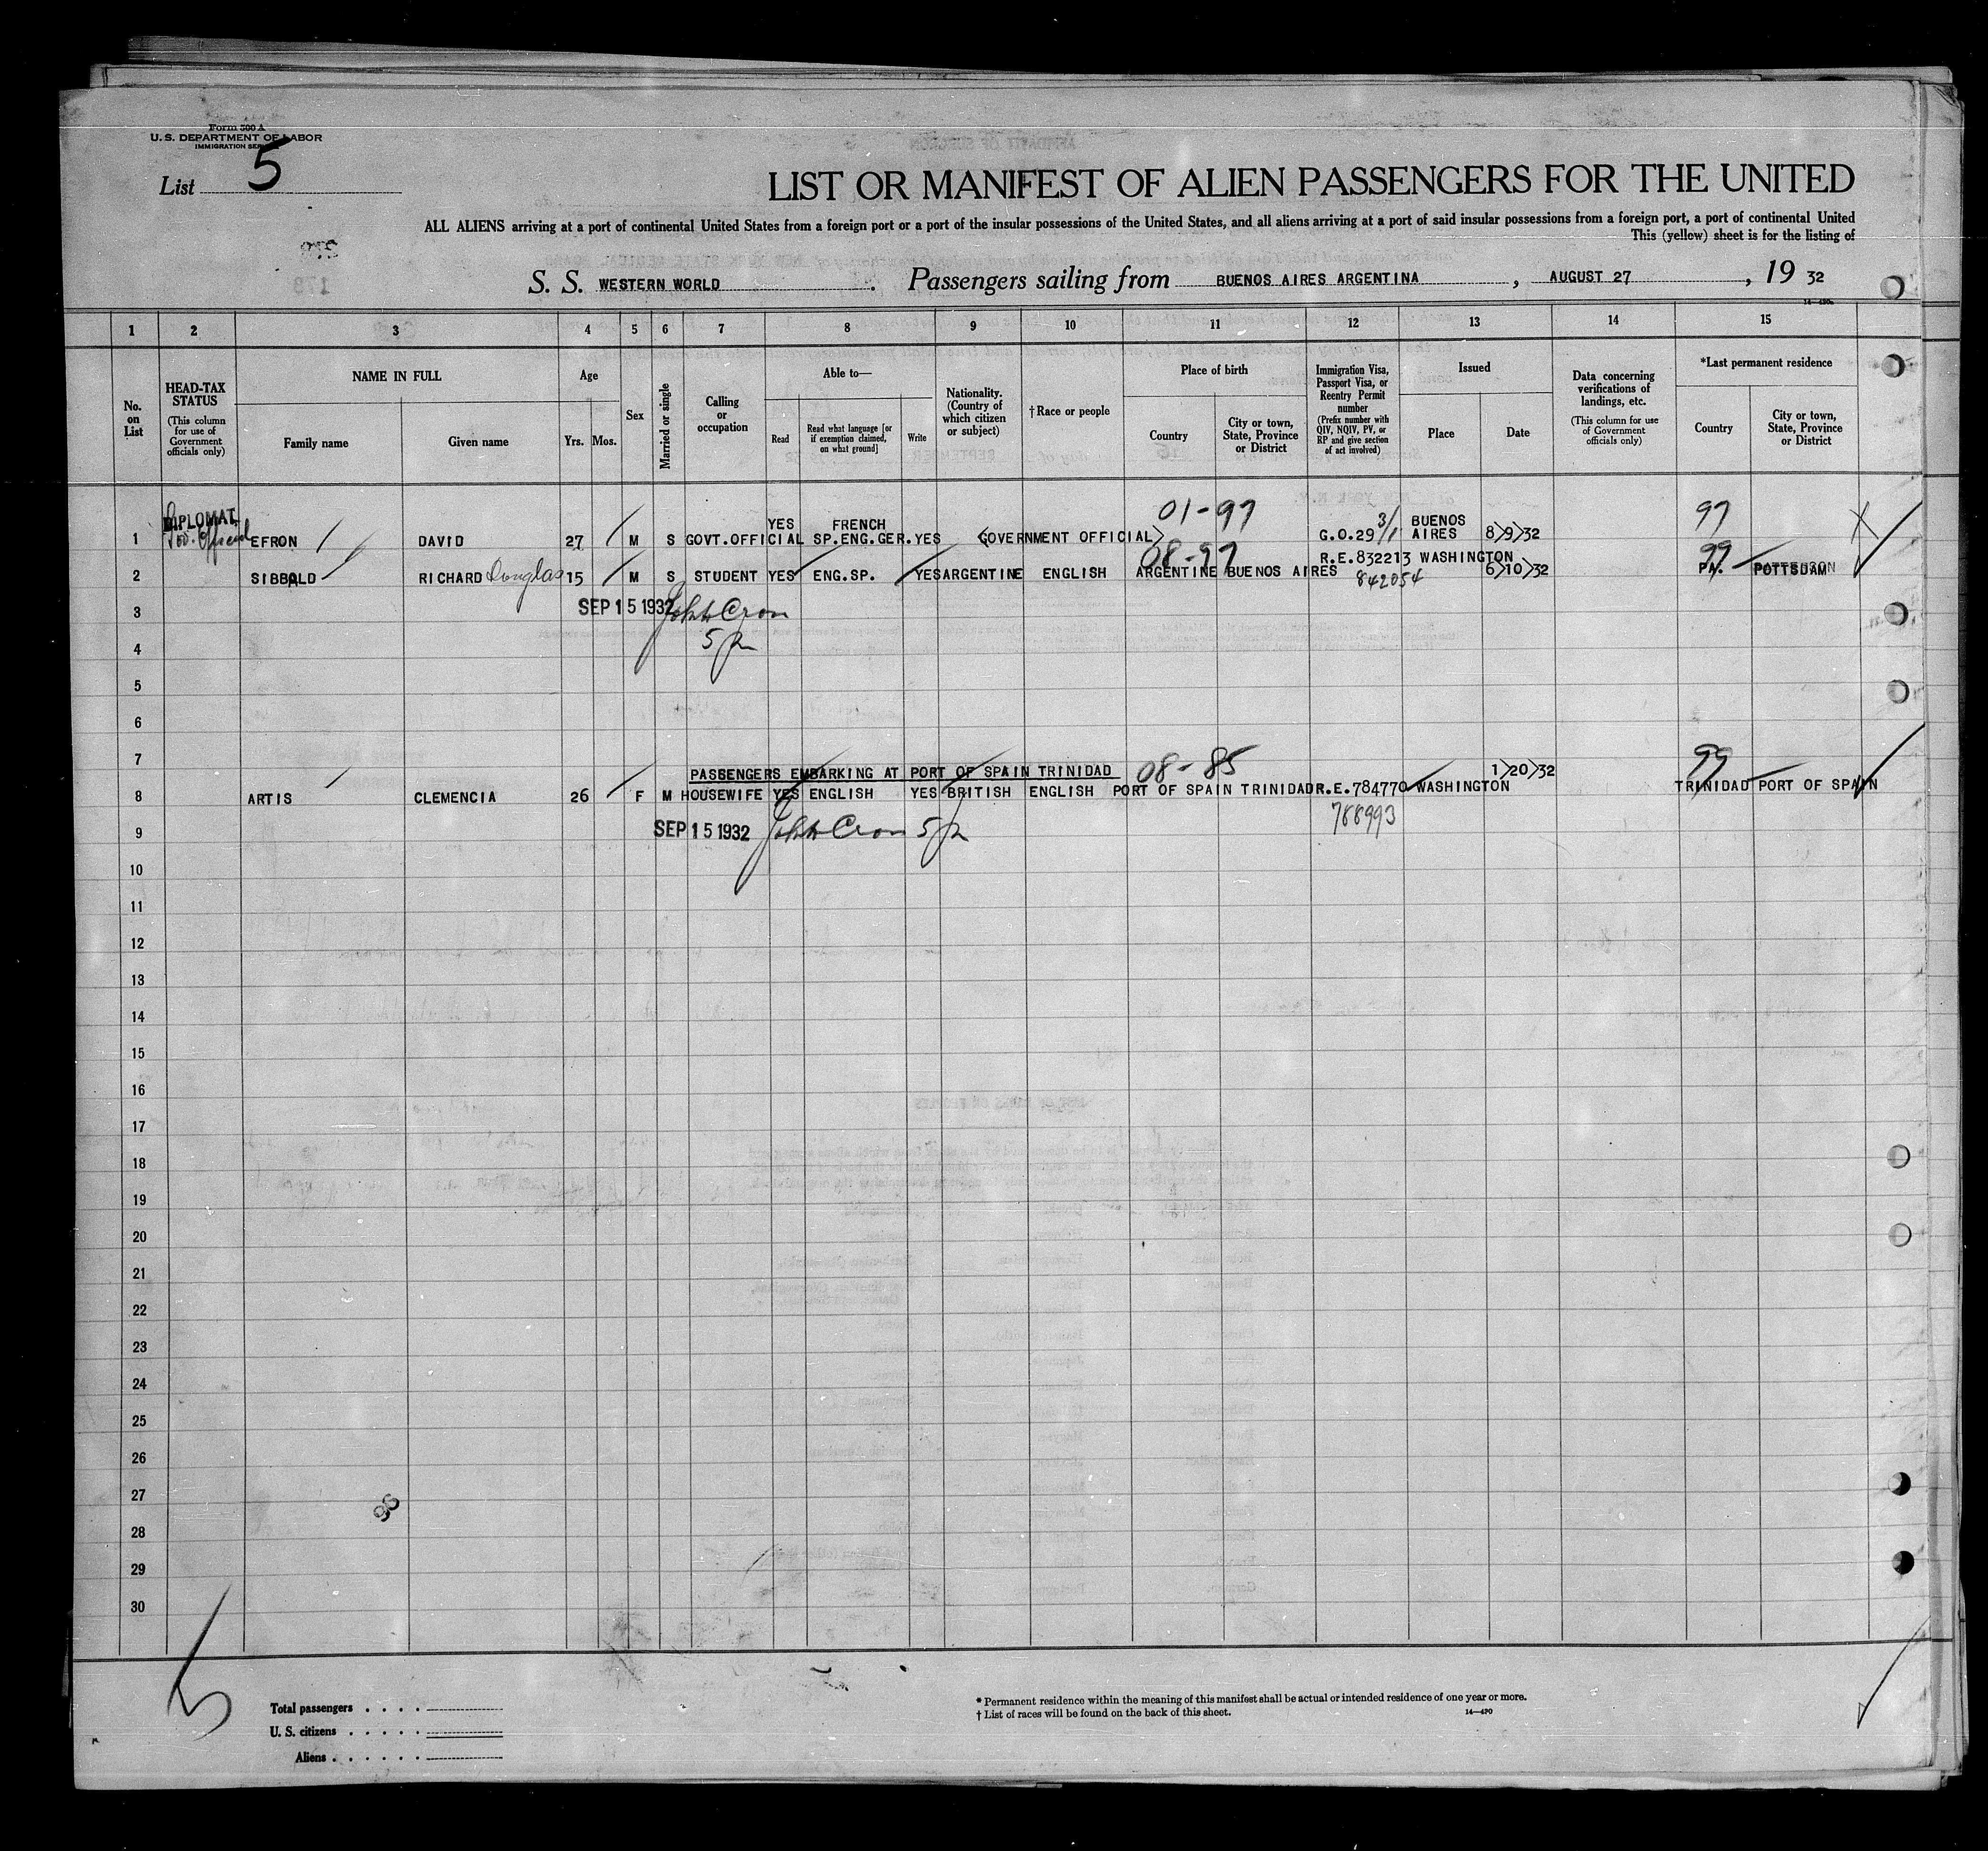 Form 500 A
U. S. DEPARTMENT OF LABOR
IMMIGRATION SERVICE
List 5
LIST OR MANIFEST OF ALIEN PASSENGERS FOR THE UNITED
ALL ALIENS arriving at a port of continental United States from a foreign port or a port of the insular possessions of the United States, and all aliens arriving at a port of said insular possessions from a foreign port, a port of continental United
This (yellow) sheet is for the listing of
S. S. WESTERN WORLD . Passengers sailing from BUENOS AIRES ARGENTINA , AUGUST 27 , 19 32
1 2 3 4 5 6 7 8 9 10 11 12 13 14 15
No. on List
HEAD-TAX STATUS
(This column for use of Government officials only)
NAME IN FULL
Family name
Given name
Age
Yrs. Mos.
Sex
Married or single
Calling or occupation
Able to—
Read
Read what language [or if exemption claimed, on what ground]
Write
Nationality. (Country of which citizen or subject)
†Race or people
Place of birth
Country
City or town, State, Province or District
Immigration Visa, Passport Visa, or Reentry Permit number
(Prefix number with QIV, NQIV, PV, or RP and give section of act involved)
Issued
Place
Date
Data concerning verifications of landings, etc.
(This column for use of Government officials only)
*Last permanent residence
Country
City or town, State, Province or District
DIPLOMAT
Gov. Official
01-97 97
1 EFRON DAVID 27 M S GOVT.OFFICIAL YES FRENCH SP.ENG.GER. YES <GOVERNMENT OFFICIAL> G.O.29 3/1 BUENOS AIRES 8>9>32
08-97 99
2 SIBBALD RICHARD Douglas 15 M S STUDENT YES ENG.SP. YES ARGENTINE ENGLISH ARGENTINE BUENOS AIRES R.E.832213 WASHINGTON 6>10>32 PA. POTTSDAM
842054
3 SEP 15 1932 John Cron
4
5
6
7 PASSENGERS EMBARKING AT PORT OF SPAIN TRINIDAD 08-85 1>20>32 99
8 ARTIS CLEMENCIA 26 F M HOUSEWIFE YES ENGLISH YES BRITISH ENGLISH PORT OF SPAIN TRINIDAD R.E.784770 WASHINGTON TRINIDAD PORT OF SPAIN
788993
9 SEP 15 1932 John Cron
10
11
12
13
14
15
16
17
18
19
20
21
22
23
24
25
26
27
28
29
30
Total passengers . . . .
U. S. citizens . . . . .
Aliens . . . . . .
* Permanent residence within the meaning of this manifest shall be actual or intended residence of one year or more.
† List of races will be found on the back of this sheet.
14—490